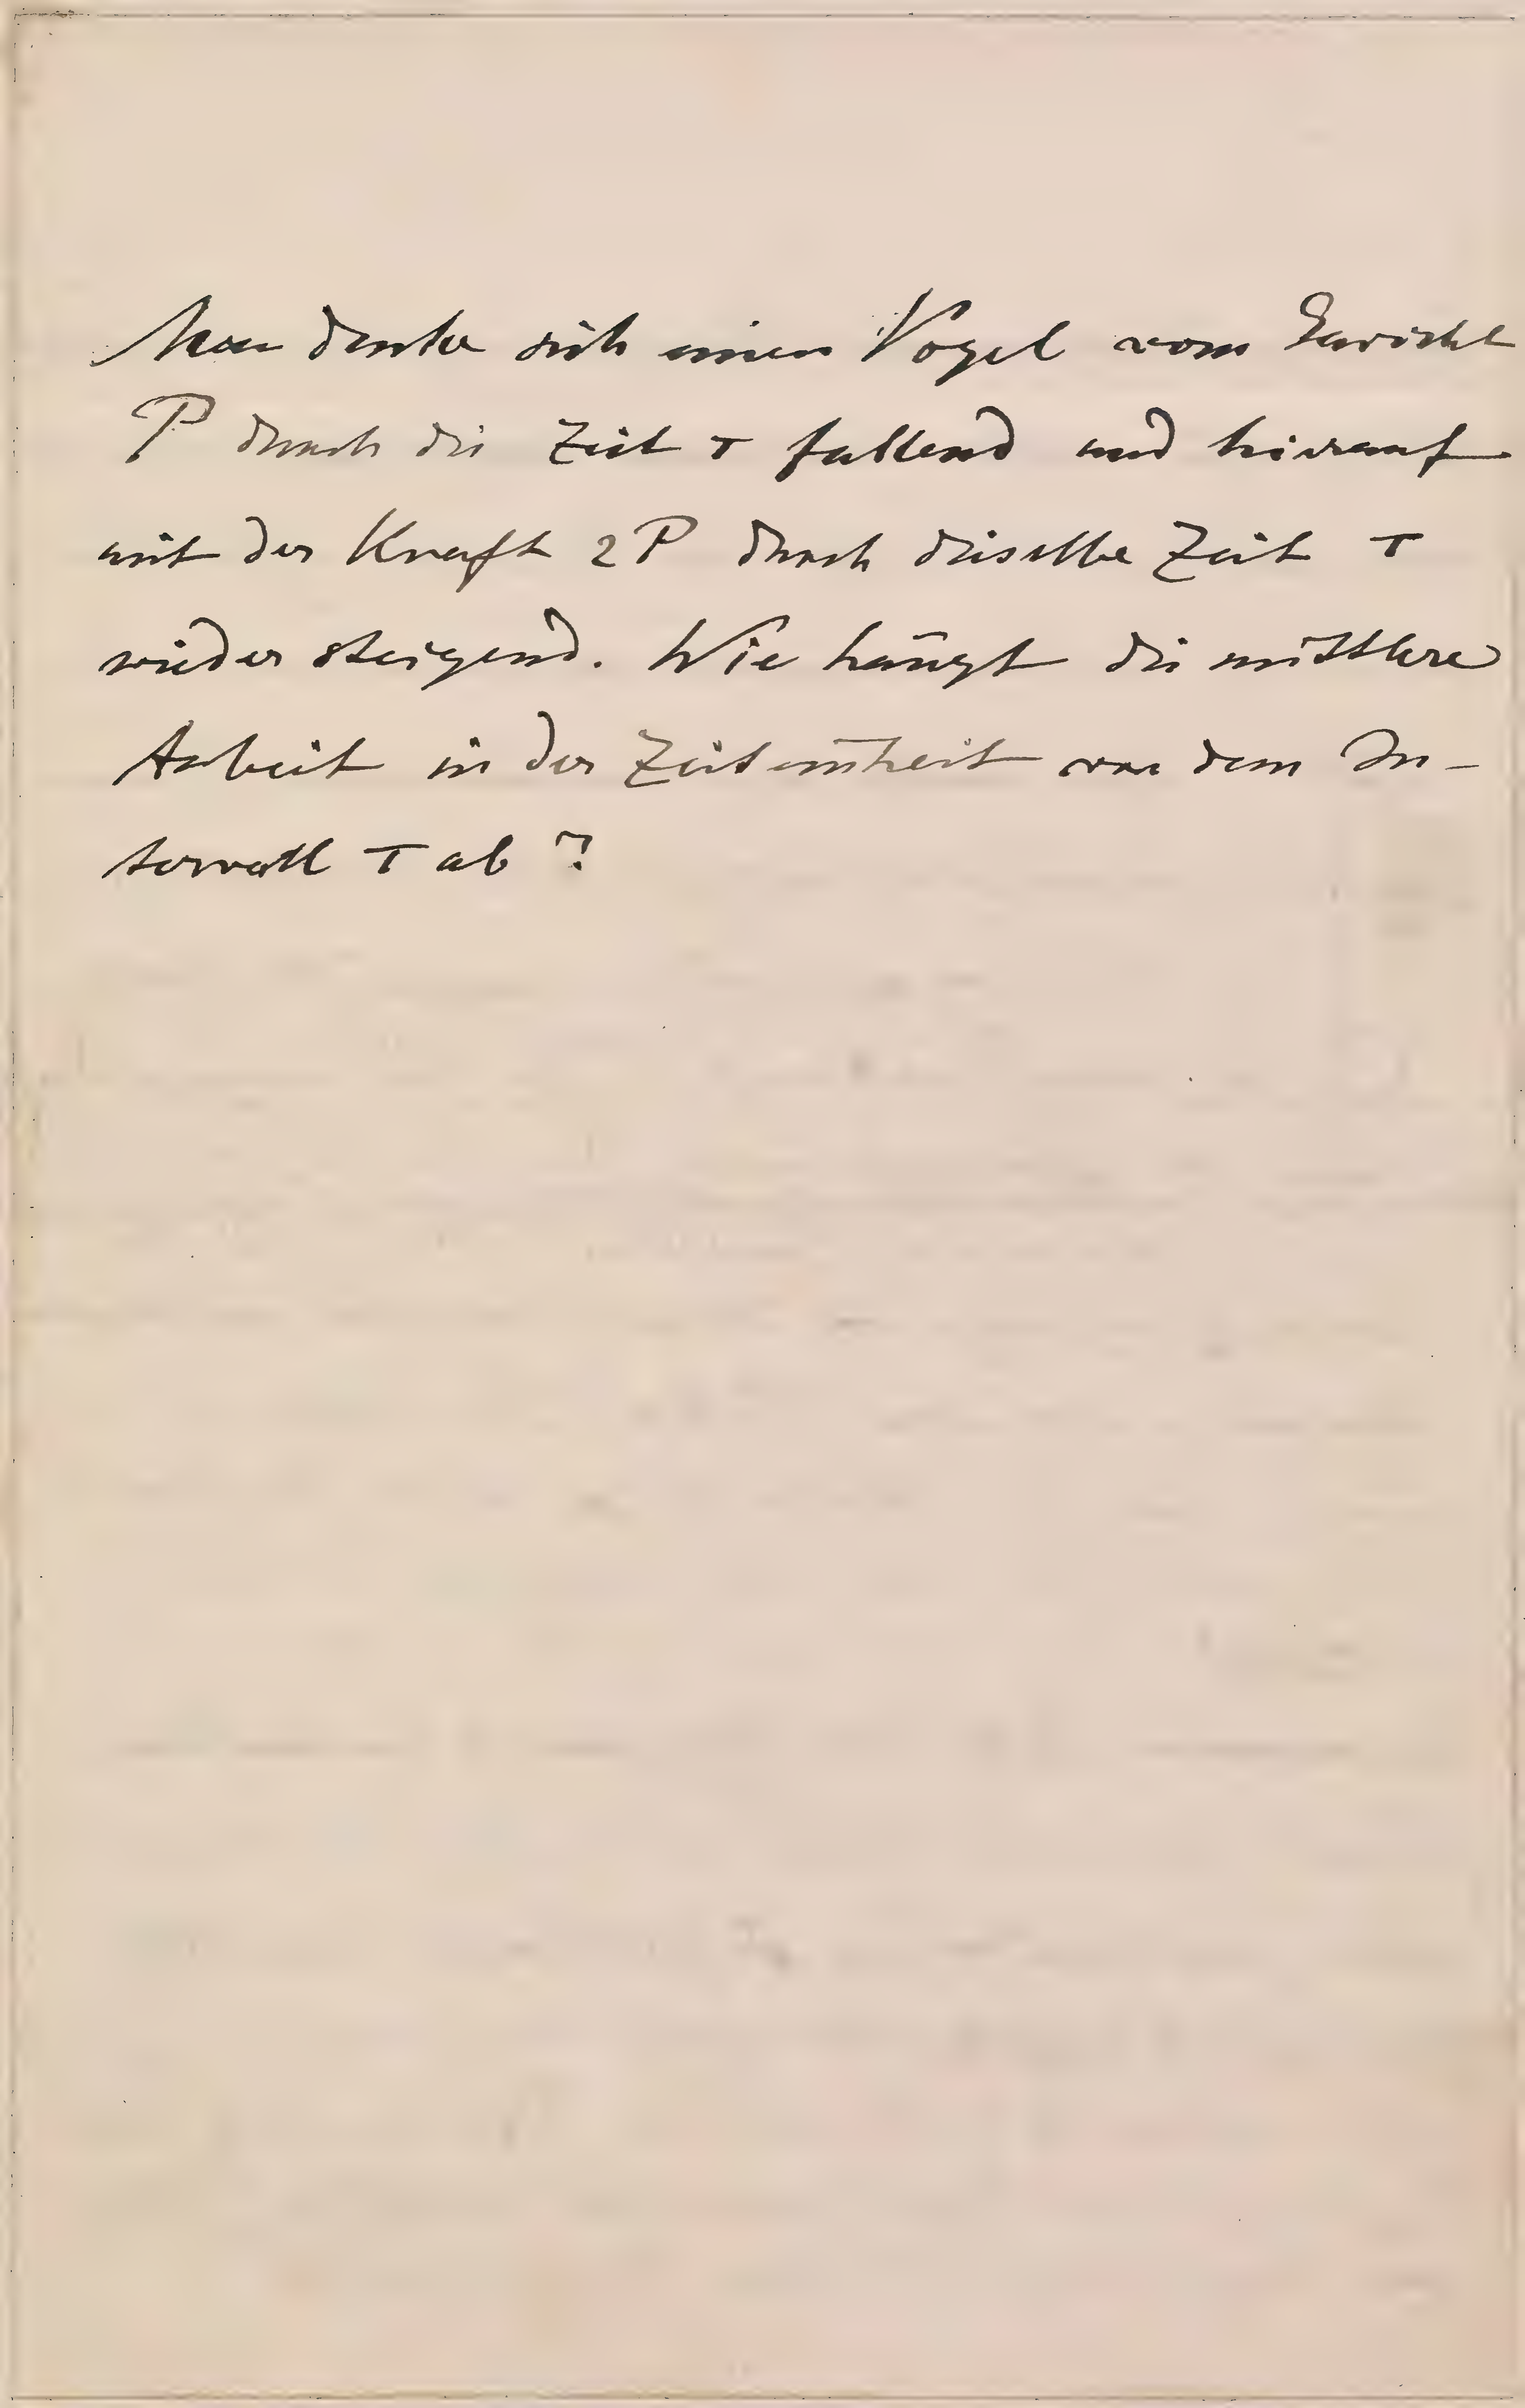 Man denke sich einen Vogel vom Gewicht
P durch die Zeit τ fallend und hierauf
mit der Kraft 2P durch dieselbe Zeit τ
wieder steigend. Wie hängt die mittlere
Arbeit in der Zeiteinheit von dem In-
tervall τ ab?